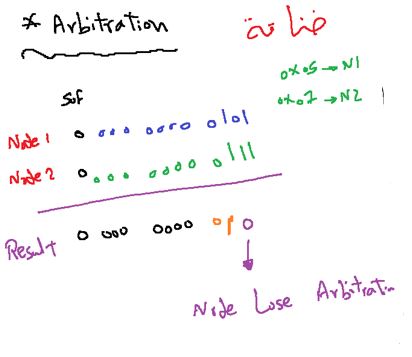 * Arbitration
0x05 → N1
0x07 → N2
SOF
Node 1 0 000 0000 0101
Node 2 0 000 0000 0111
Result 0 000 0000 010
Node Lose Arbitration